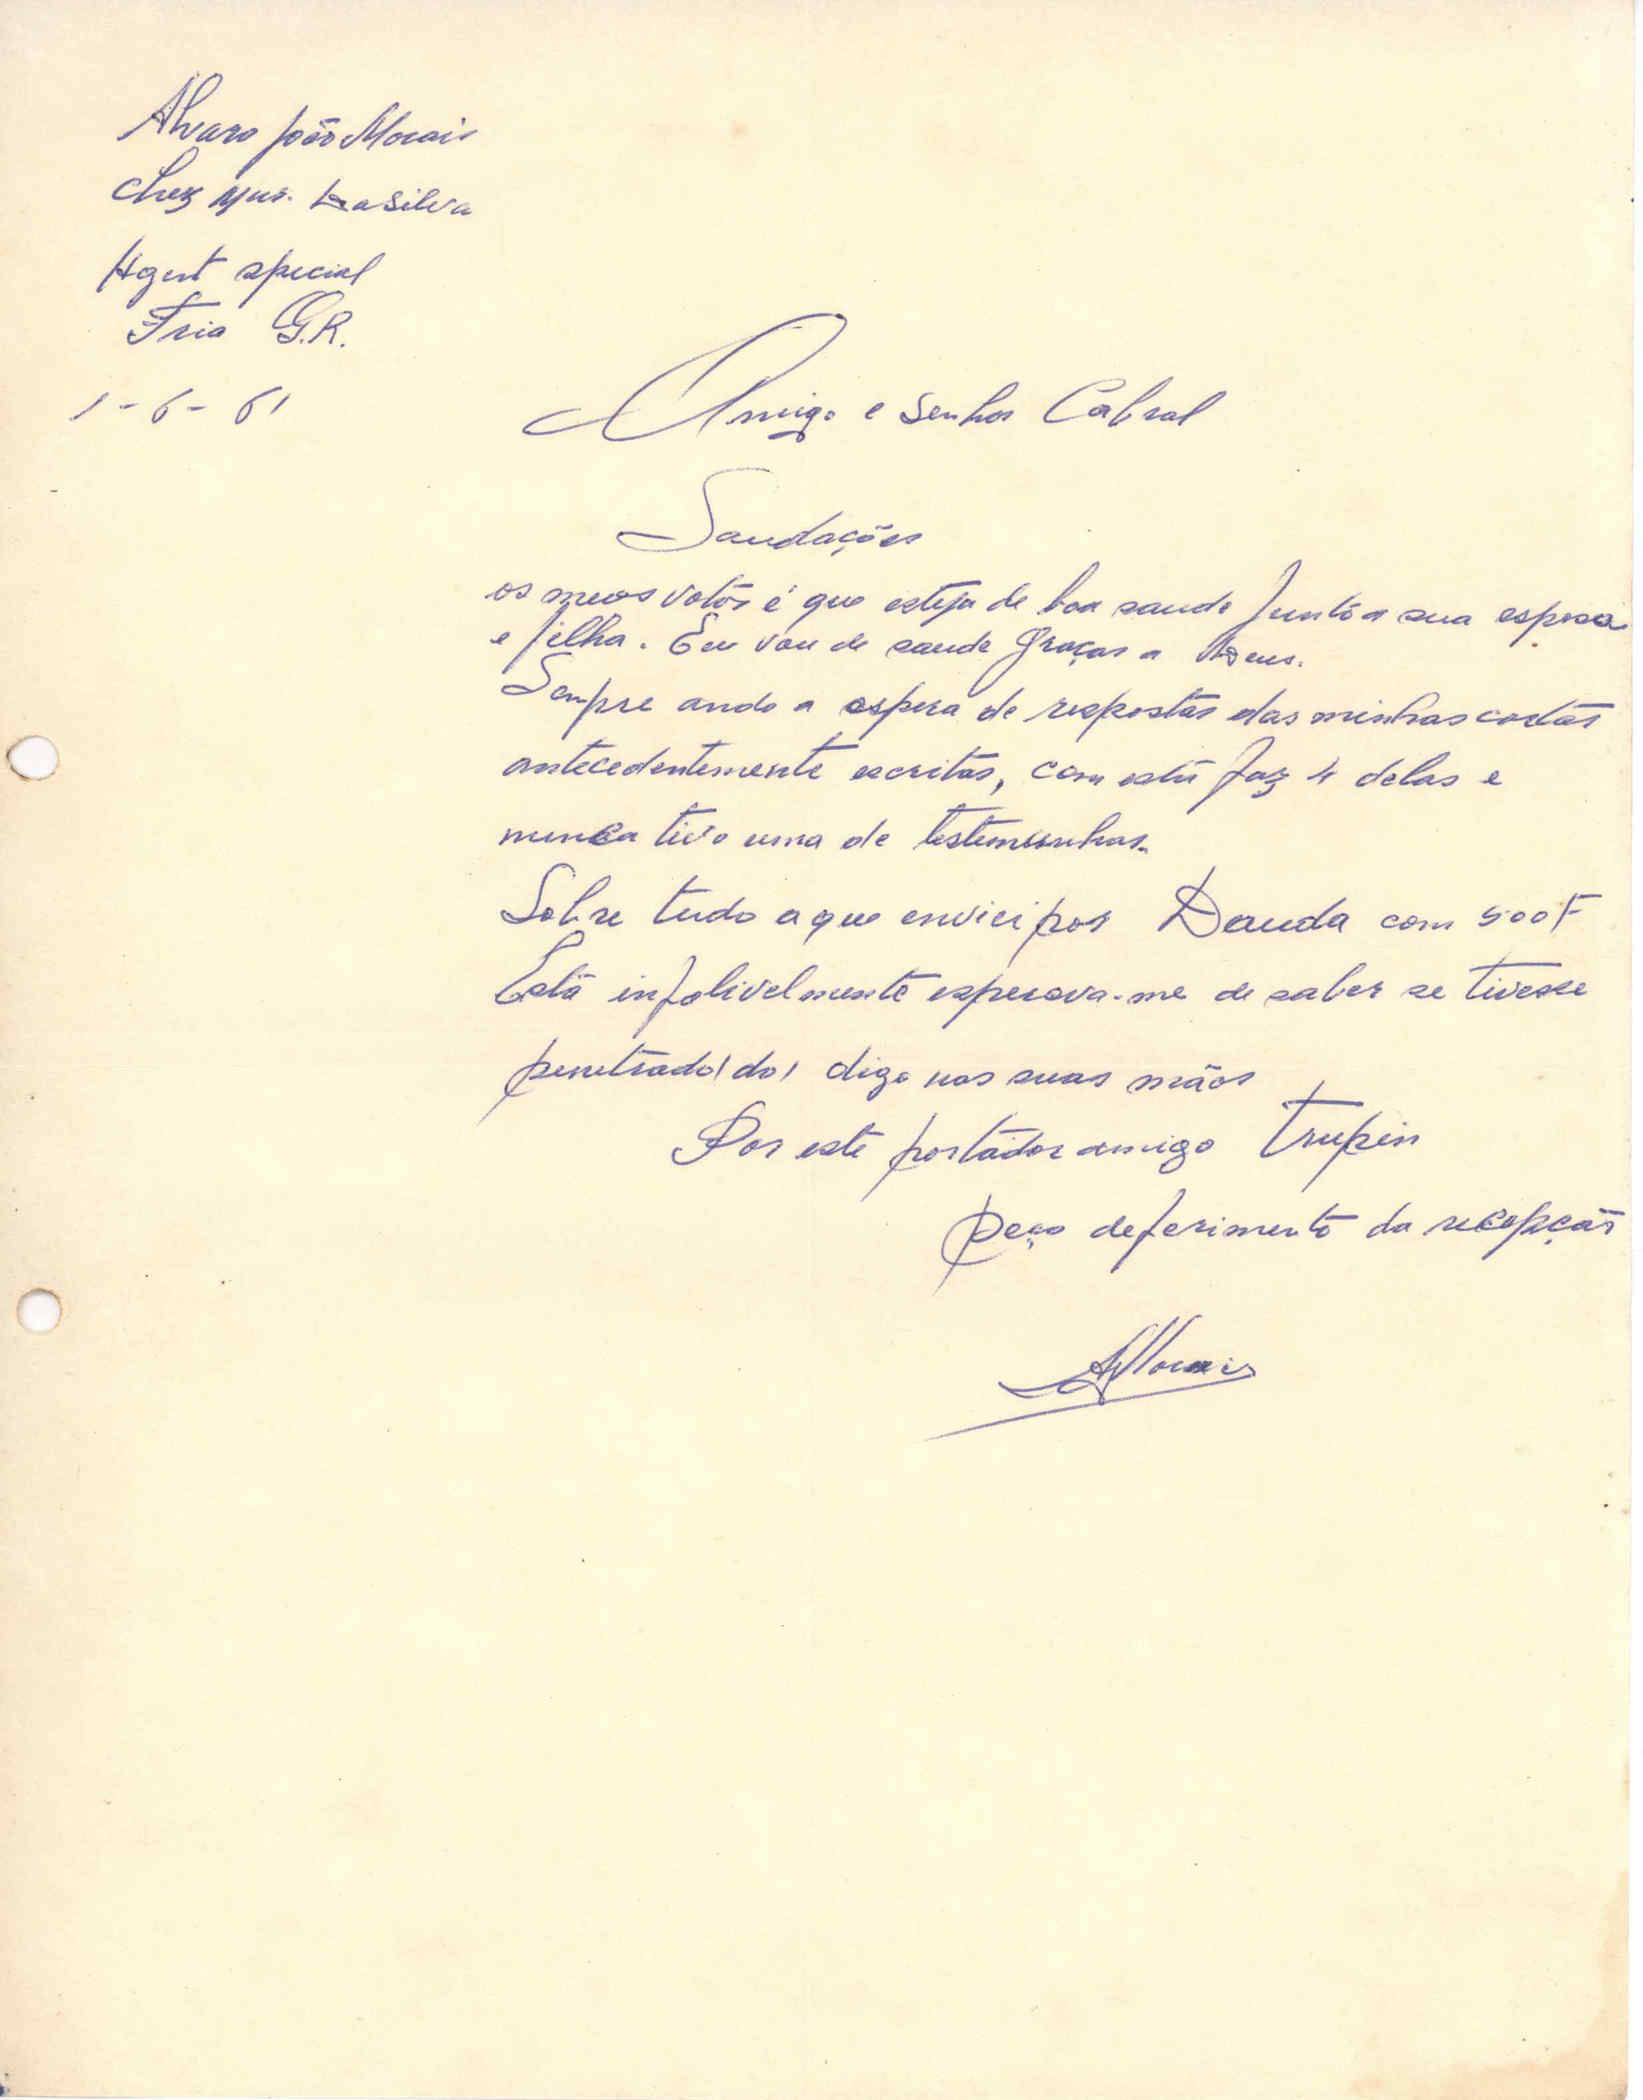 Alvaro João Morais
Chez Mur. Dasilva
Agent special
Fria G.R.
1-6-61
Amigo e Senhor Cabral
Saudações
os meus votos é que esteja de boa saude Junto a sua esposa
e filha. Eu vou de saude graças a Deus.
Sempre ando a espera de respostas das minhas cartas
antecedentemente escritas, com esta faz 4 delas e
nunca tive uma de testemunhas.
Sobre tudo a que enviei por Dauda com 500F
Está infalivelmente esperava-me de saber se tivesse
penetrado(do) digo nas suas mãos
Por este portador amigo Trupin
Peço deferimento da recepção
AMorais